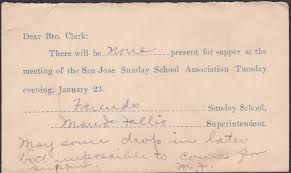 Dear Bro. Clark:
There will be None present for supper at the
meeting of the San Jose Sunday School Association Tuesday
evening, January 23.
Friends Sunday School,
Maude Superintendent.
May some drop in later
but impossible to come for
supper. M.F.